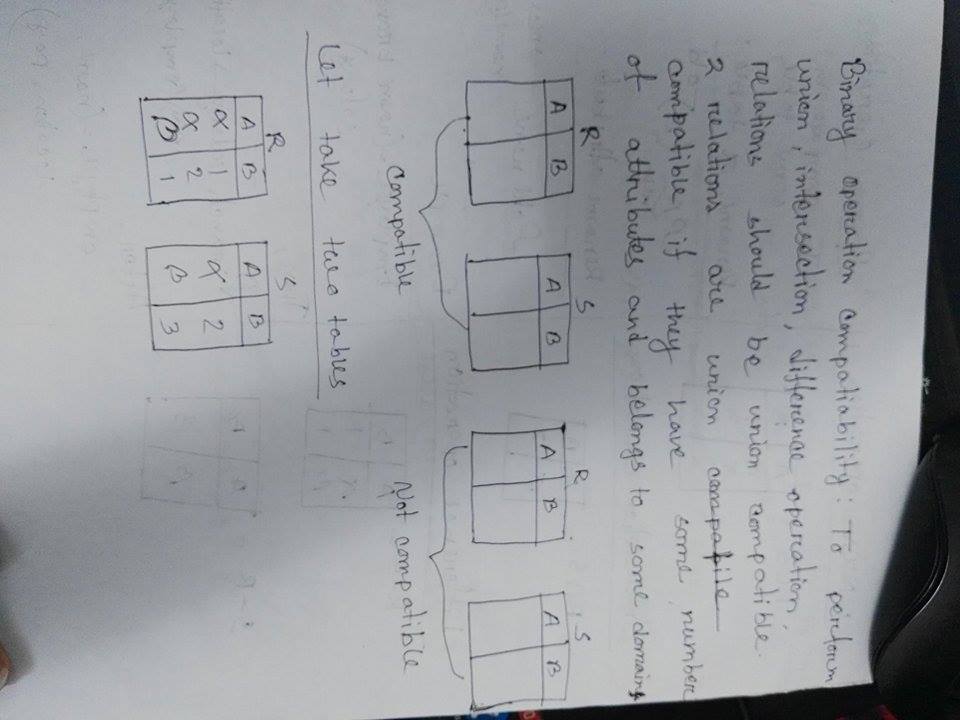 Binary operation compatiability: To perform
union, intersection, difference operation,
relations should be union compatible.
2 relations are union compatile
compatible if they have some number
of attributes and belongs to some domains
R S R S
A B A B A B A B
compatible Not compatible
Let take two tables
R S
A B A B
α 1 α 2
α 2 β 3
β 1